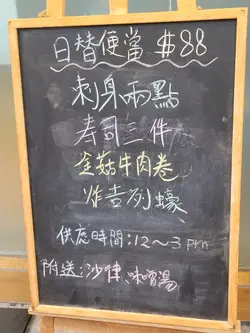 日替便當 $88
刺身兩點
寿司三件
金菇牛肉卷
炸吉列蠔
供應時間:12~3 pm
附送:沙律、味噌湯